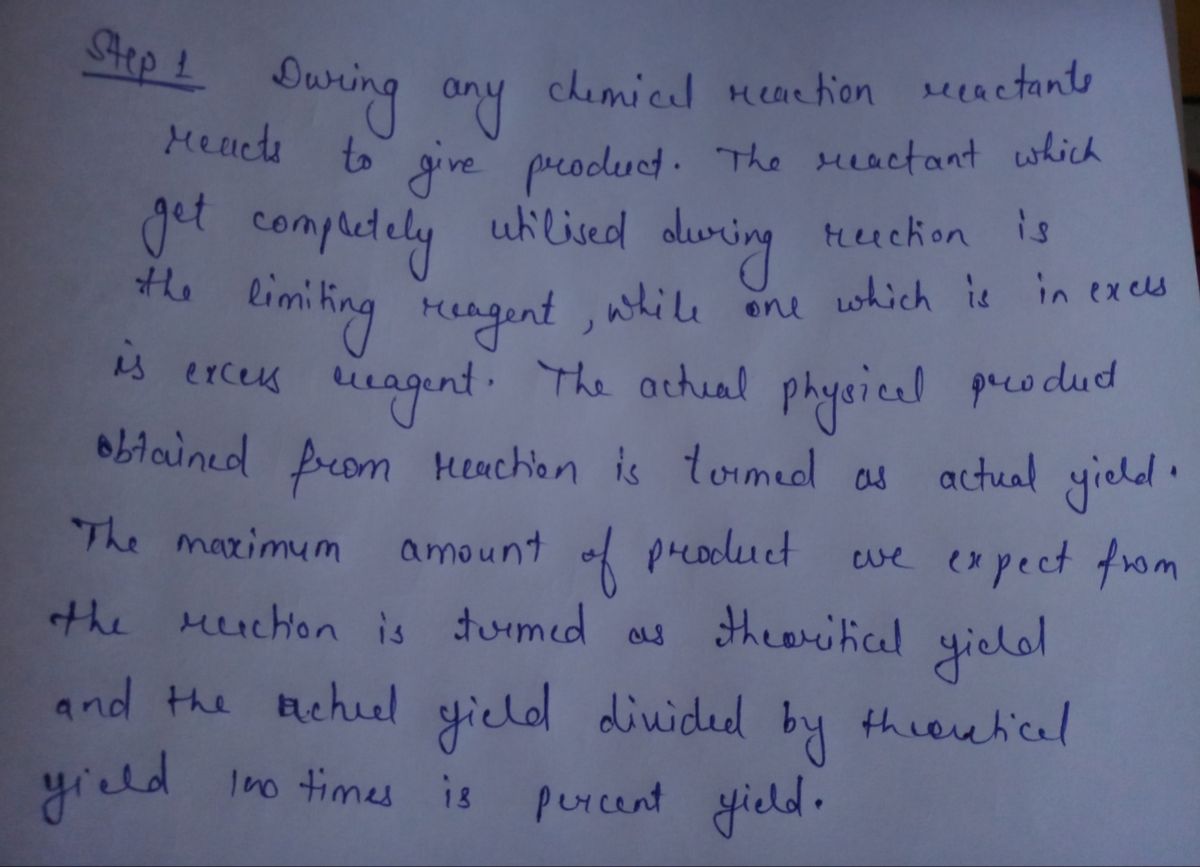 Step 1 During any chemical reaction reactants
reacts to give product. The reactant which
get completely utilised during reaction is
the limiting reagent, while one which is in exces
is excess reagent. The actual physical product
obtained from reaction is termed as actual yield.
The maximum amount of product we expect from
the reaction is termed as theoritical yield
and the actual yield divided by theoretical
yield 100 times is percent yield.